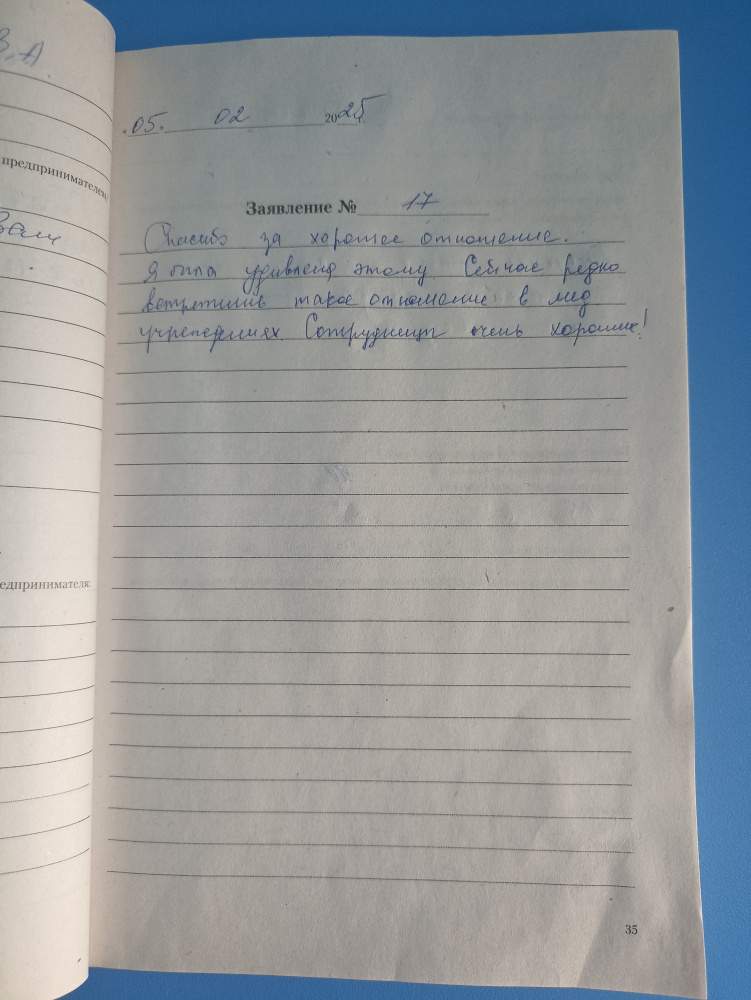 В.А
предпринимателем
Вам
едпринимателя:
.05. 02 2025
Заявление № 17
Спасибо за хорошее отношение.
Я была удивлена этому Сейчас редко
встретишь такое отношение в мед
учреждениях. Сотрудницы очень хорошие!
35